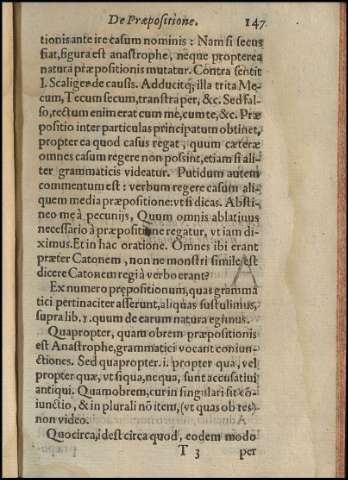 De Præpositione. 147
tionis ante ire casum nominis: Nam si secus
fiat, figura est anastrophe, neque propterea
natura præpositionis mutatur. Contra sentit
I. Scaliger de causis. Adducitq́; illa trita Me-
cum, Tecum secum, transtra per, &c. Sed fal-
so, rectum enim erat cum me, cum te, &c. Præ
positio inter particulas principatum obtinet,
propter ea quod casus regat, quum cæteræ
omnes casum regere non possint, etiam si ali-
ter grammaticis videatur. Putidum autem
commentum est: verbum regere casum ali-
quem media præpositione: vt si dicas. Absti-
neo me à pecunijs, Quum omnis ablatiuus
necessario à præpositione regatur, vt iam di-
ximus. Et in hac oratione. Omnes ibi erant
præter Catonem, non ne monstri simile est
dicere Catonem regi à verbo erant?
Ex numero præpositionum, quas gramma
tici pertinaciter asserunt, aliquas sustulimus,
supra lib. 1. quum de earum natura egimus.
Quapropter, quam obrem præpositionis
est Anastrophe, grammatici vocant coniun-
ctiones. Sed quapropter. i. propter qua, vel
propter quæ, vt siqua, nequa, sunt accusatiui
antiqui. Quamobrem, cur in singulari sit co-
iunctio, & in plurali nō item, (vt quas ob res)
non video.
Quocirca, idest circa quod, eodem modo
T 3 per